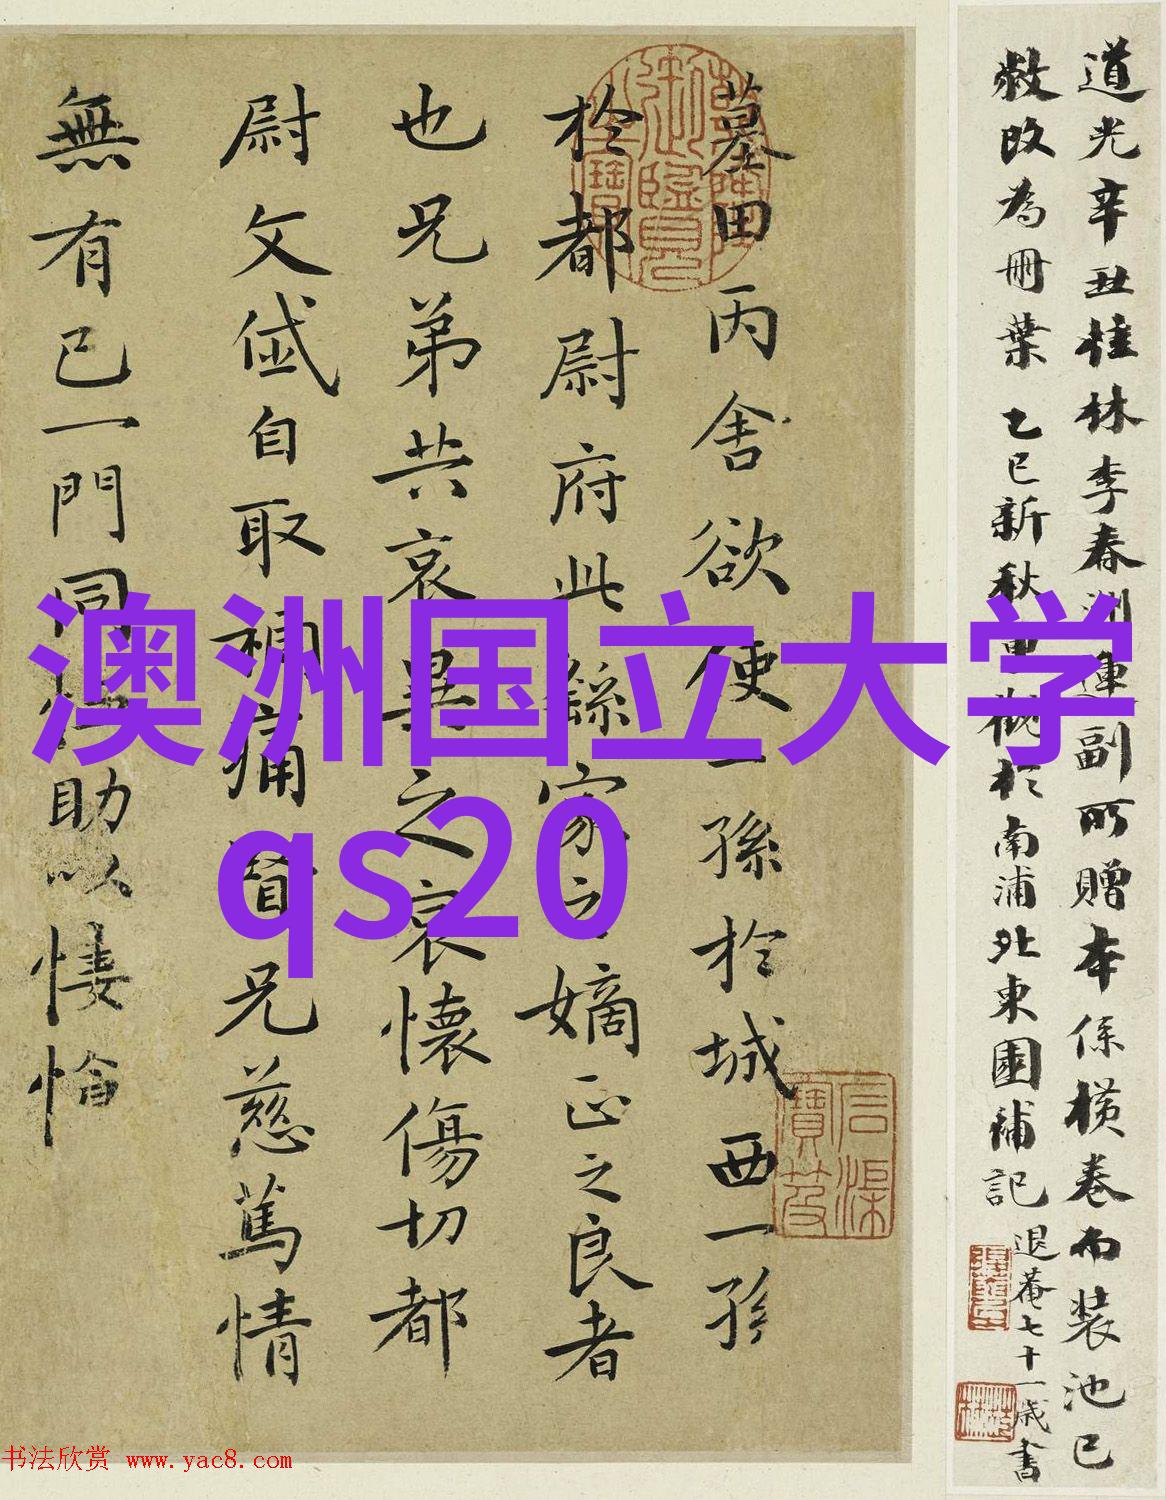 墓田丙舍欲使一孫於城西一孫
於都尉府此繇家之嫡正之良者
也兄弟共哀異之哀懷傷切都
尉文岱自取禍痛賢兄慈篤情
無有已一門同恤助以悽愴
道光辛丑桂林李春洲運副所贈本係橫卷而裝池已
敝改為冊葉 乙巳新秋重觀於南浦北東園補記
退菴七十一歲書
澳洲国立大学
qs20
御覽
書法欣赏 www.yac8.com